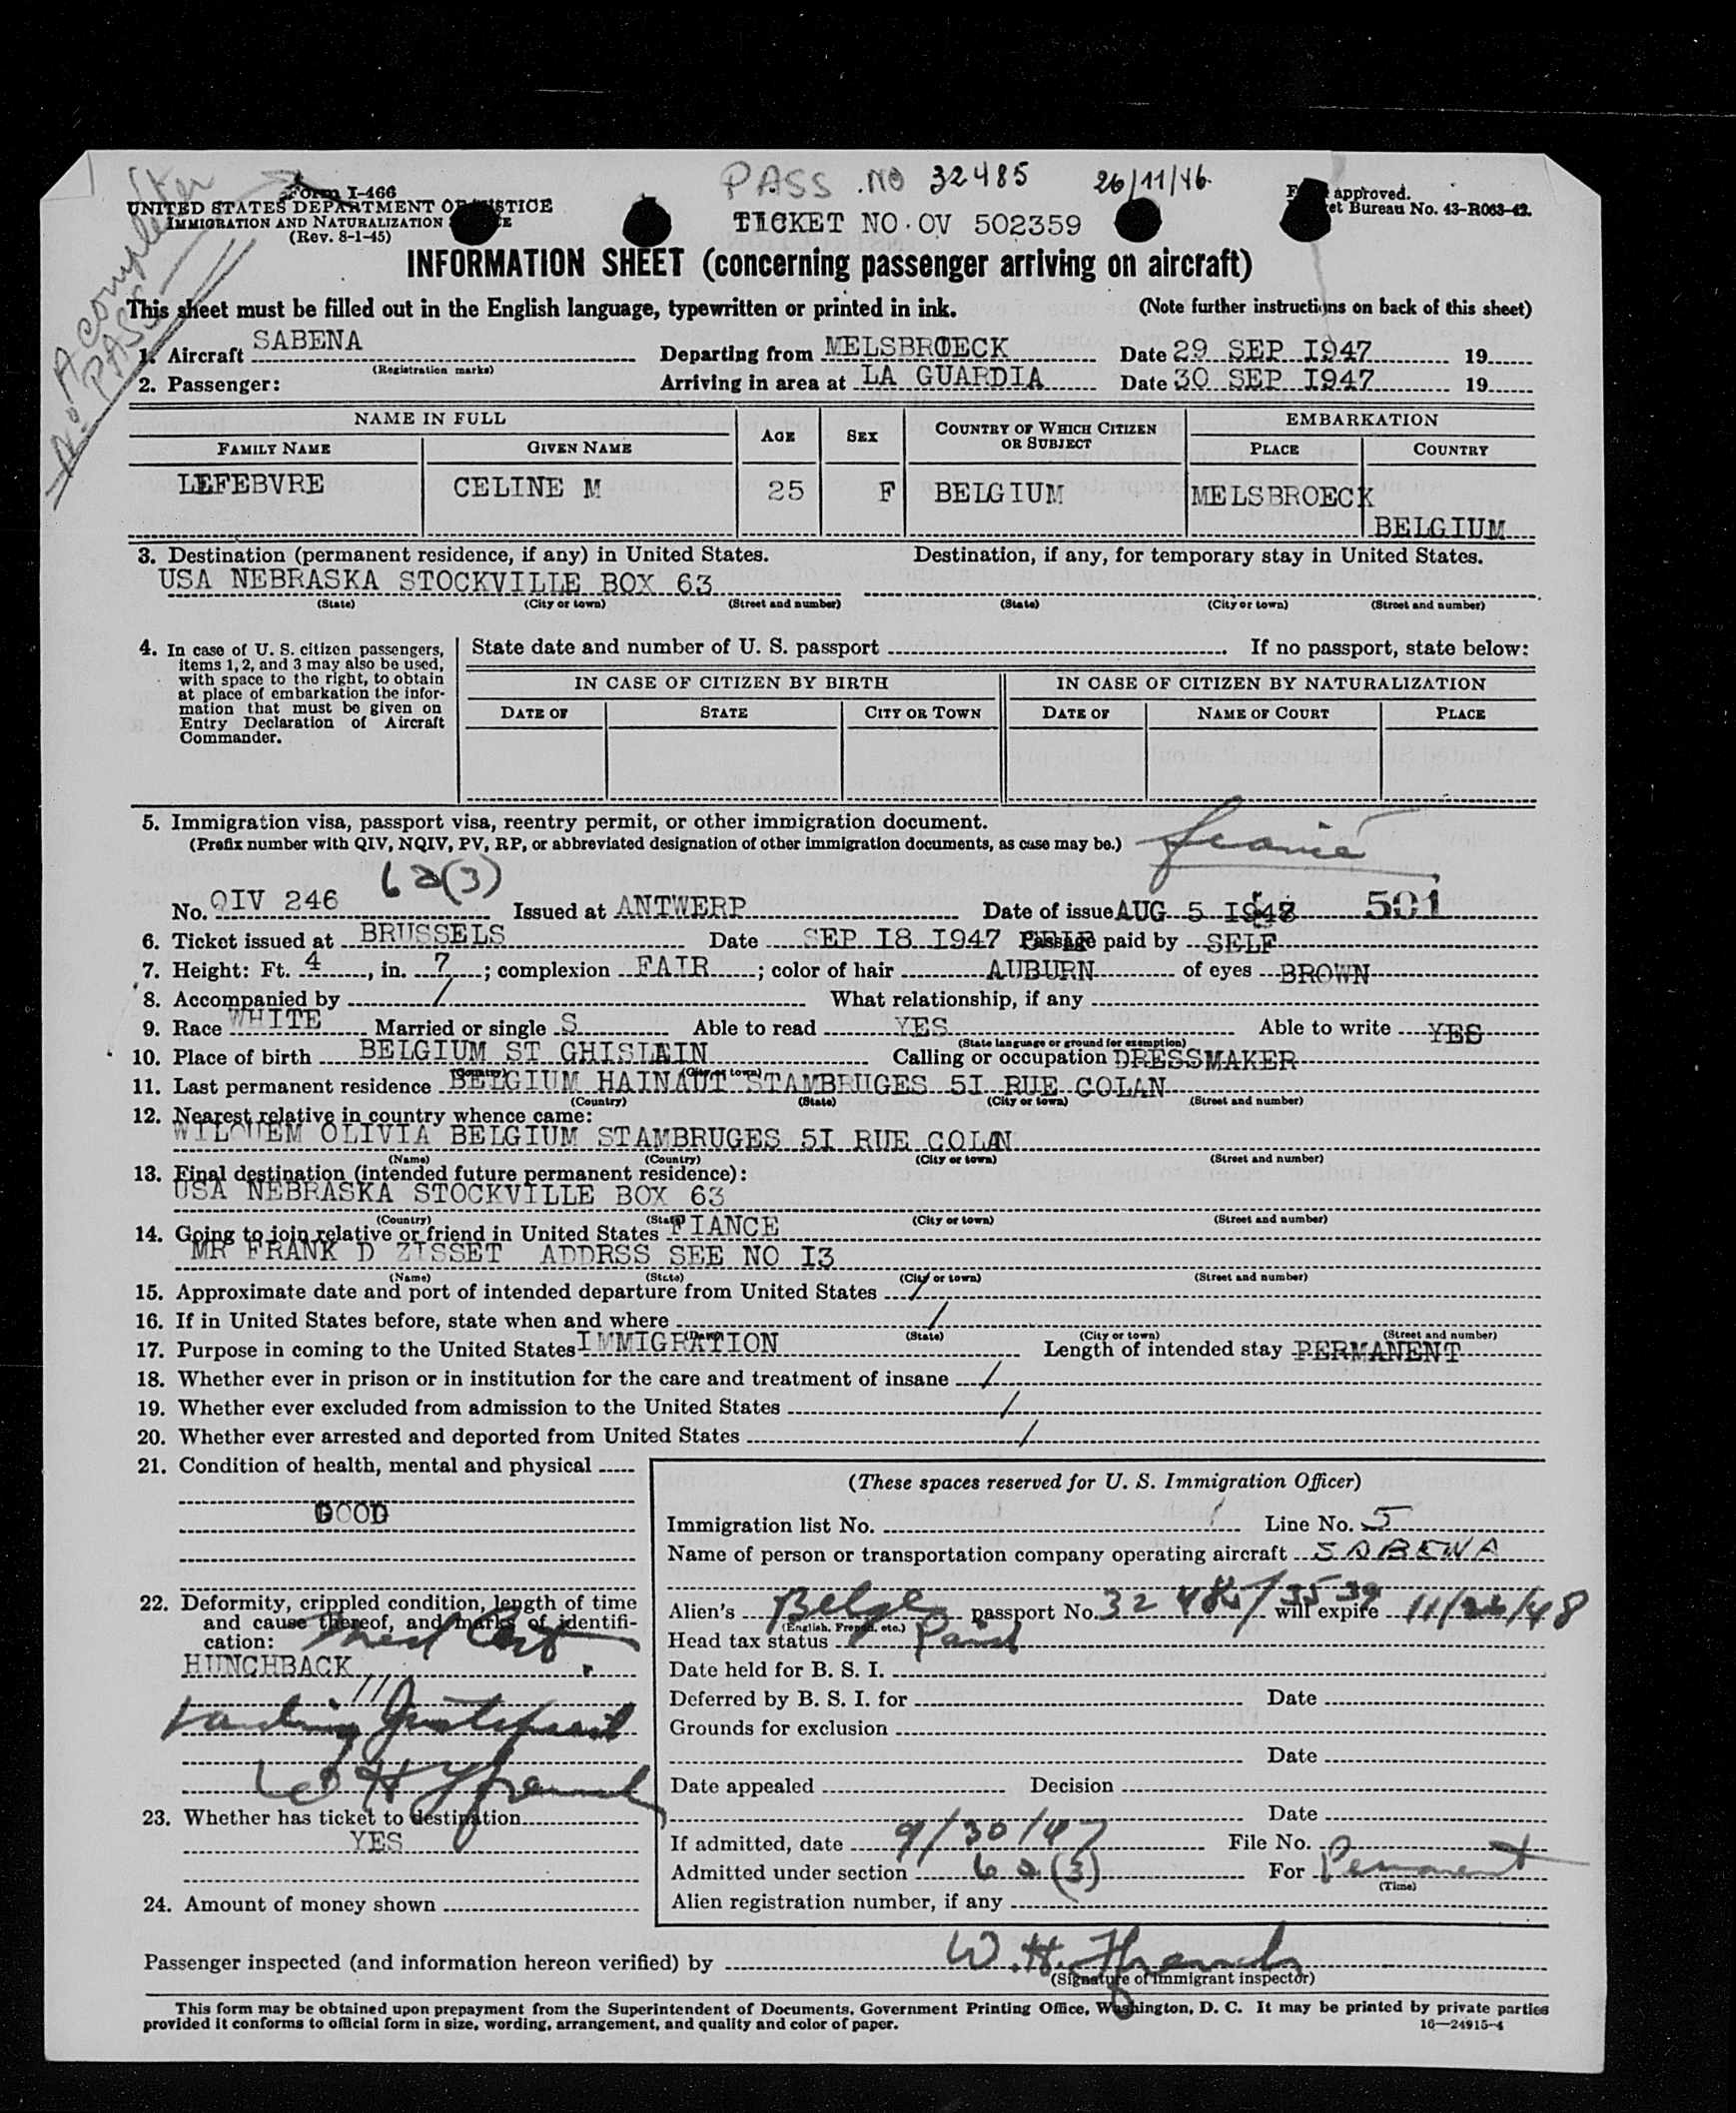 A completer
No PASS
PASS .NO 32485 26/11/46.
Form I-466
UNITED STATES DEPARTMENT
IMMIGRATION AND NATURALIZATION
(Rev. 8-1-45)
approved.
Bureau No. 43-R063-42.
TICKET NO.OV 502359
INFORMATION SHEET (concerning passenger arriving on aircraft)
This sheet must be filled out in the English language, typewritten or printed in ink. (Note further instructions on back of this sheet)
1. Aircraft SABENA Departing from MELSBROECK Date 29 SEP I947 19
(Registration marks)
2. Passenger: Arriving in area at LA GUARDIA Date 30 SEP I947 19
NAME IN FULL AGE SEX COUNTRY OF WHICH CITIZEN OR SUBJECT EMBARKATION
FAMILY NAME GIVEN NAME PLACE COUNTRY
LEFEBVRE CELINE M 25 F BELGIUM MELSBROECK
BELGIUM
3. Destination (permanent residence, if any) in United States. Destination, if any, for temporary stay in United States.
USA NEBRASKA STOCKVILLE BOX 63
(State) (City or town) (Street and number) (State) (City or town) (Street and number)
4. In case of U. S. citizen passengers,
items 1, 2, and 3 may also be used,
with space to the right, to obtain
at place of embarkation the infor-
mation that must be given on
Entry Declaration of Aircraft
Commander.
State date and number of U. S. passport . If no passport, state below:
IN CASE OF CITIZEN BY BIRTH IN CASE OF CITIZEN BY NATURALIZATION
DATE OF STATE CITY OR TOWN DATE OF NAME OF COURT PLACE
5. Immigration visa, passport visa, reentry permit, or other immigration document.
(Prefix number with QIV, NQIV, PV, RP, or abbreviated designation of other immigration documents, as case may be.)
6a(3)
No. QIV 246 Issued at ANTWERP Date of issue AUG 5 501
6. Ticket issued at BRUSSELS Date SEP I8 I947 Passage paid by SELF
7. Height: Ft. 4, in. 7; complexion FAIR; color of hair AUBURN of eyes BROWN
8. Accompanied by / What relationship, if any
9. Race WHITE Married or single S Able to read YES Able to write YES
(State language or ground for exemption)
10. Place of birth BELGIUM ST GHISLAIN Calling or occupation DRESSMAKER
(Country) (City or town)
11. Last permanent residence BELGIUM HAINAUT STAMBRUGES 5I RUE COLAN
(Country) (State) (City or town) (Street and number)
12. Nearest relative in country whence came:
WILQUEM OLIVIA BELGIUM STAMBRUGES 5I RUE COLAN
(Name) (Country) (City or town) (Street and number)
13. Final destination (intended future permanent residence):
USA NEBRASKA STOCKVILLE BOX 63
(Country) (State) (City or town) (Street and number)
14. Going to join relative or friend in United States FIANCE
MR FRANK D ZISSET ADDRSS SEE NO I3
(Name) (State) (City or town) (Street and number)
15. Approximate date and port of intended departure from United States /
16. If in United States before, state when and where /
(Date) (State) (City or town) (Street and number)
17. Purpose in coming to the United States IMMIGRATION Length of intended stay PERMANENT
18. Whether ever in prison or in institution for the care and treatment of insane /
19. Whether ever excluded from admission to the United States /
20. Whether ever arrested and deported from United States /
21. Condition of health, mental and physical
GOOD
22. Deformity, crippled condition, length of time
and cause thereof, and marks of identifi-
cation: Med Cert.
HUNCHBACK
W H French
23. Whether has ticket to destination
YES
24. Amount of money shown
(These spaces reserved for U. S. Immigration Officer)
Immigration list No. 1 Line No. 5
Name of person or transportation company operating aircraft SABENA
Alien's Belge passport No. 32485/3539 will expire 11/26/48
(English, French, etc.)
Head tax status Paid
Date held for B. S. I.
Deferred by B. S. I. for Date
Grounds for exclusion
Date
Date appealed Decision
Date
If admitted, date 9/30/47 File No.
Admitted under section 6a(3) For Permanent
(Time)
Alien registration number, if any
Passenger inspected (and information hereon verified) by W. H. French
(Signature of immigrant inspector)
This form may be obtained upon prepayment from the Superintendent of Documents, Government Printing Office, Washington, D. C. It may be printed by private parties
provided it conforms to official form in size, wording, arrangement, and quality and color of paper. 16—24915-4